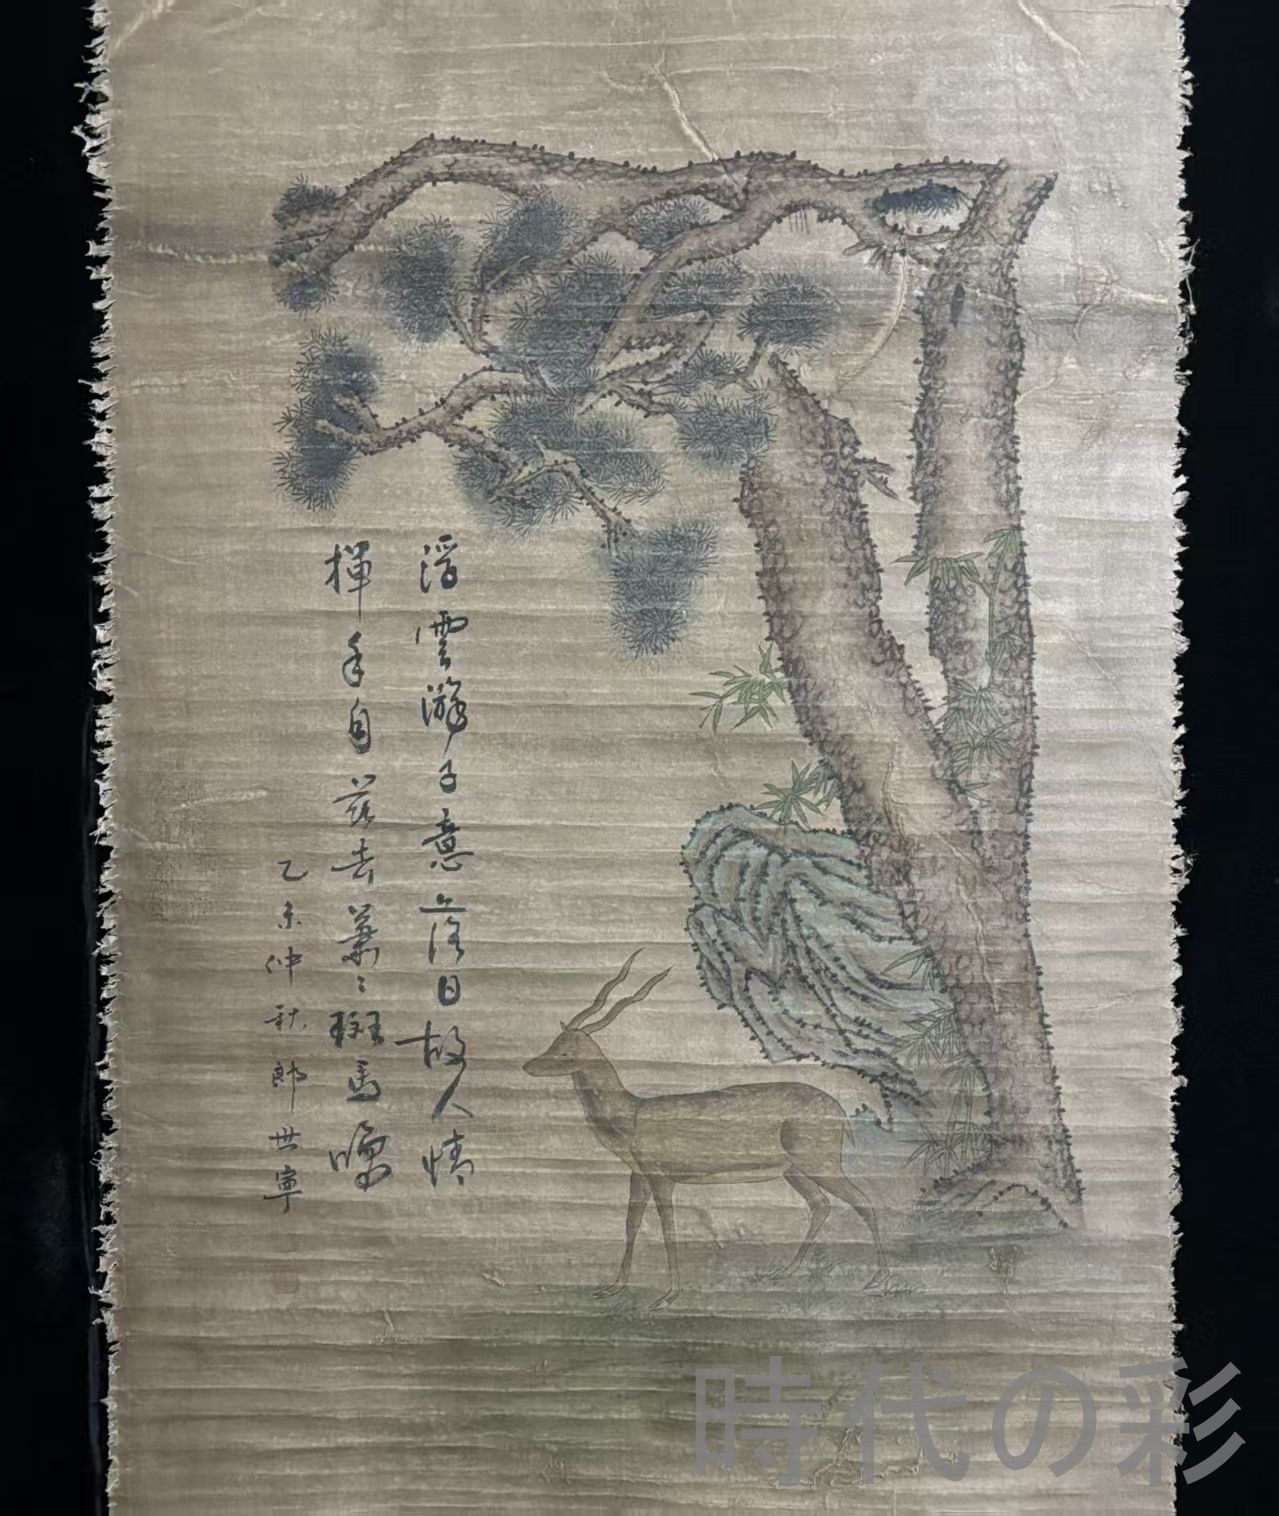 浮雲游子意落日故人情
揮手自茲去蕭〻班馬鳴
乙未仲秋郎世寧
時代の彩